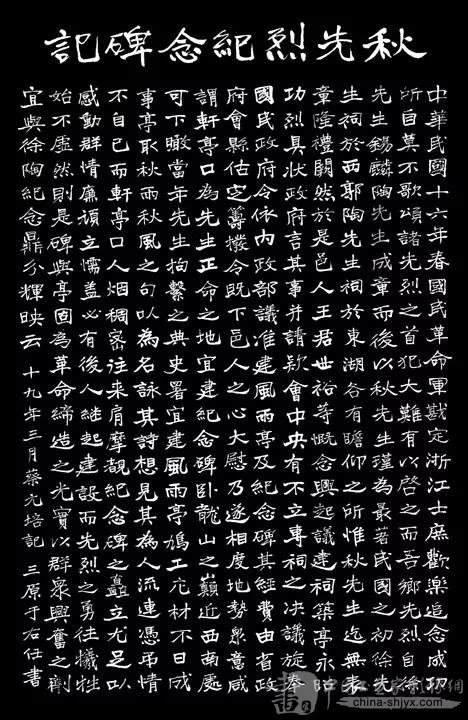 秋先烈紀念碑記
中華民國十六年春國民革命軍戡定浙江士庶歡樂追念成功
所自莫不歌頌諸先烈之首犯大難有以啓之而吾鄉先烈自徐
先生錫麟陶先生成章而後以秋先生瑾為最著民國之初徐先
生祠於西郭陶先生祠於東湖各有瞻仰之所惟秋先生迄無表
章陰禮闕然於是邑人王君世裕等慨念興起議建祠築亭永昭
功烈具狀政府言其事并請欵會中央有不立專祠之決議旋奉
國民政府令依內政部議准建風雨亭及紀念碑其經費由省政
府會縣估定籌撥令既下邑人之心大慰乃遂相度地勢衆意咸
謂軒亭口為先生正命之地宜建紀念碑卧龍山之巔近西南處
可下瞰當年先生拘繫之典史署宜建風雨亭鳩工庀材不日成
事亭取秋雨秋風之句以為名詠其詩想見其為人流連憑弔情
不自已而軒亭口人烟稠密往来肩摩覩紀念碑之矗立尤足以
感動群情廉頑立懦蓋必有後人继起建設而先烈之勇往犧牲
始不虛然則是碑與亭固為革命締造之光實以群衆興奮之劑
宜與徐陶紀念鼎分輝映云 十九年三月蔡元培記 三原于右任書
china-shjyx.com